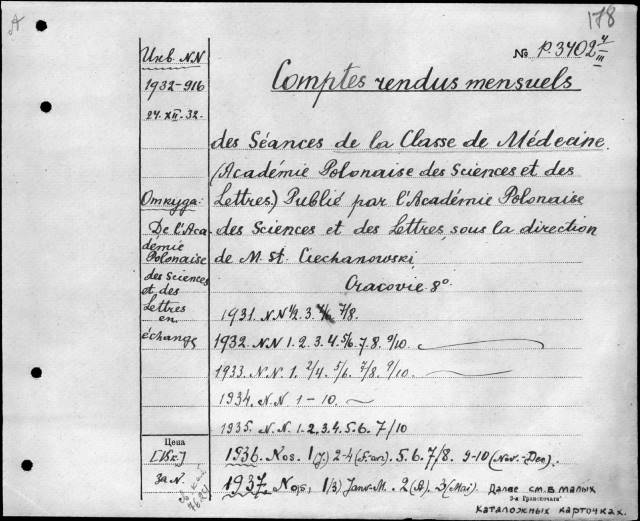 A
178
Инв. NN
1932-916
24.XII.32.
№ P.3402 4/III
Comptes rendus mensuels
des Séances de la Classe de Médecine.
(Académie Polonaise des Sciences et des
Lettres.) Publié par l'Académie Polonaise
des Sciences et des Lettres, sous la direction
de M. St. Ciechanowski
Cracovie. 8º.
Откуда:
De l'Aca-
démie
Polonaise
des Sciences
et des
Lettres
en
échange
1931. N.N 1/2. 3. 7/8.
1932. NN 1. 2. 3. 4. 5/6. 7. 8. 9/10.
1933. N.N. 1. 2/4. 5/6. 7/8. 9/10.
1934. N.N 1-10.
1935. N.N. 1. 2. 3. 4. 5. 6. 7/10
Цена
[15к.]
за N.
1936. Nos. 1 (J.) 2-4 5. 6. 7/8. 9-10 (Nov.-Dec).
1937. Nos, 1 (3) Janv-M. 2 (A). 3 (Mai). Далее см. в малых
каталожных карточках.